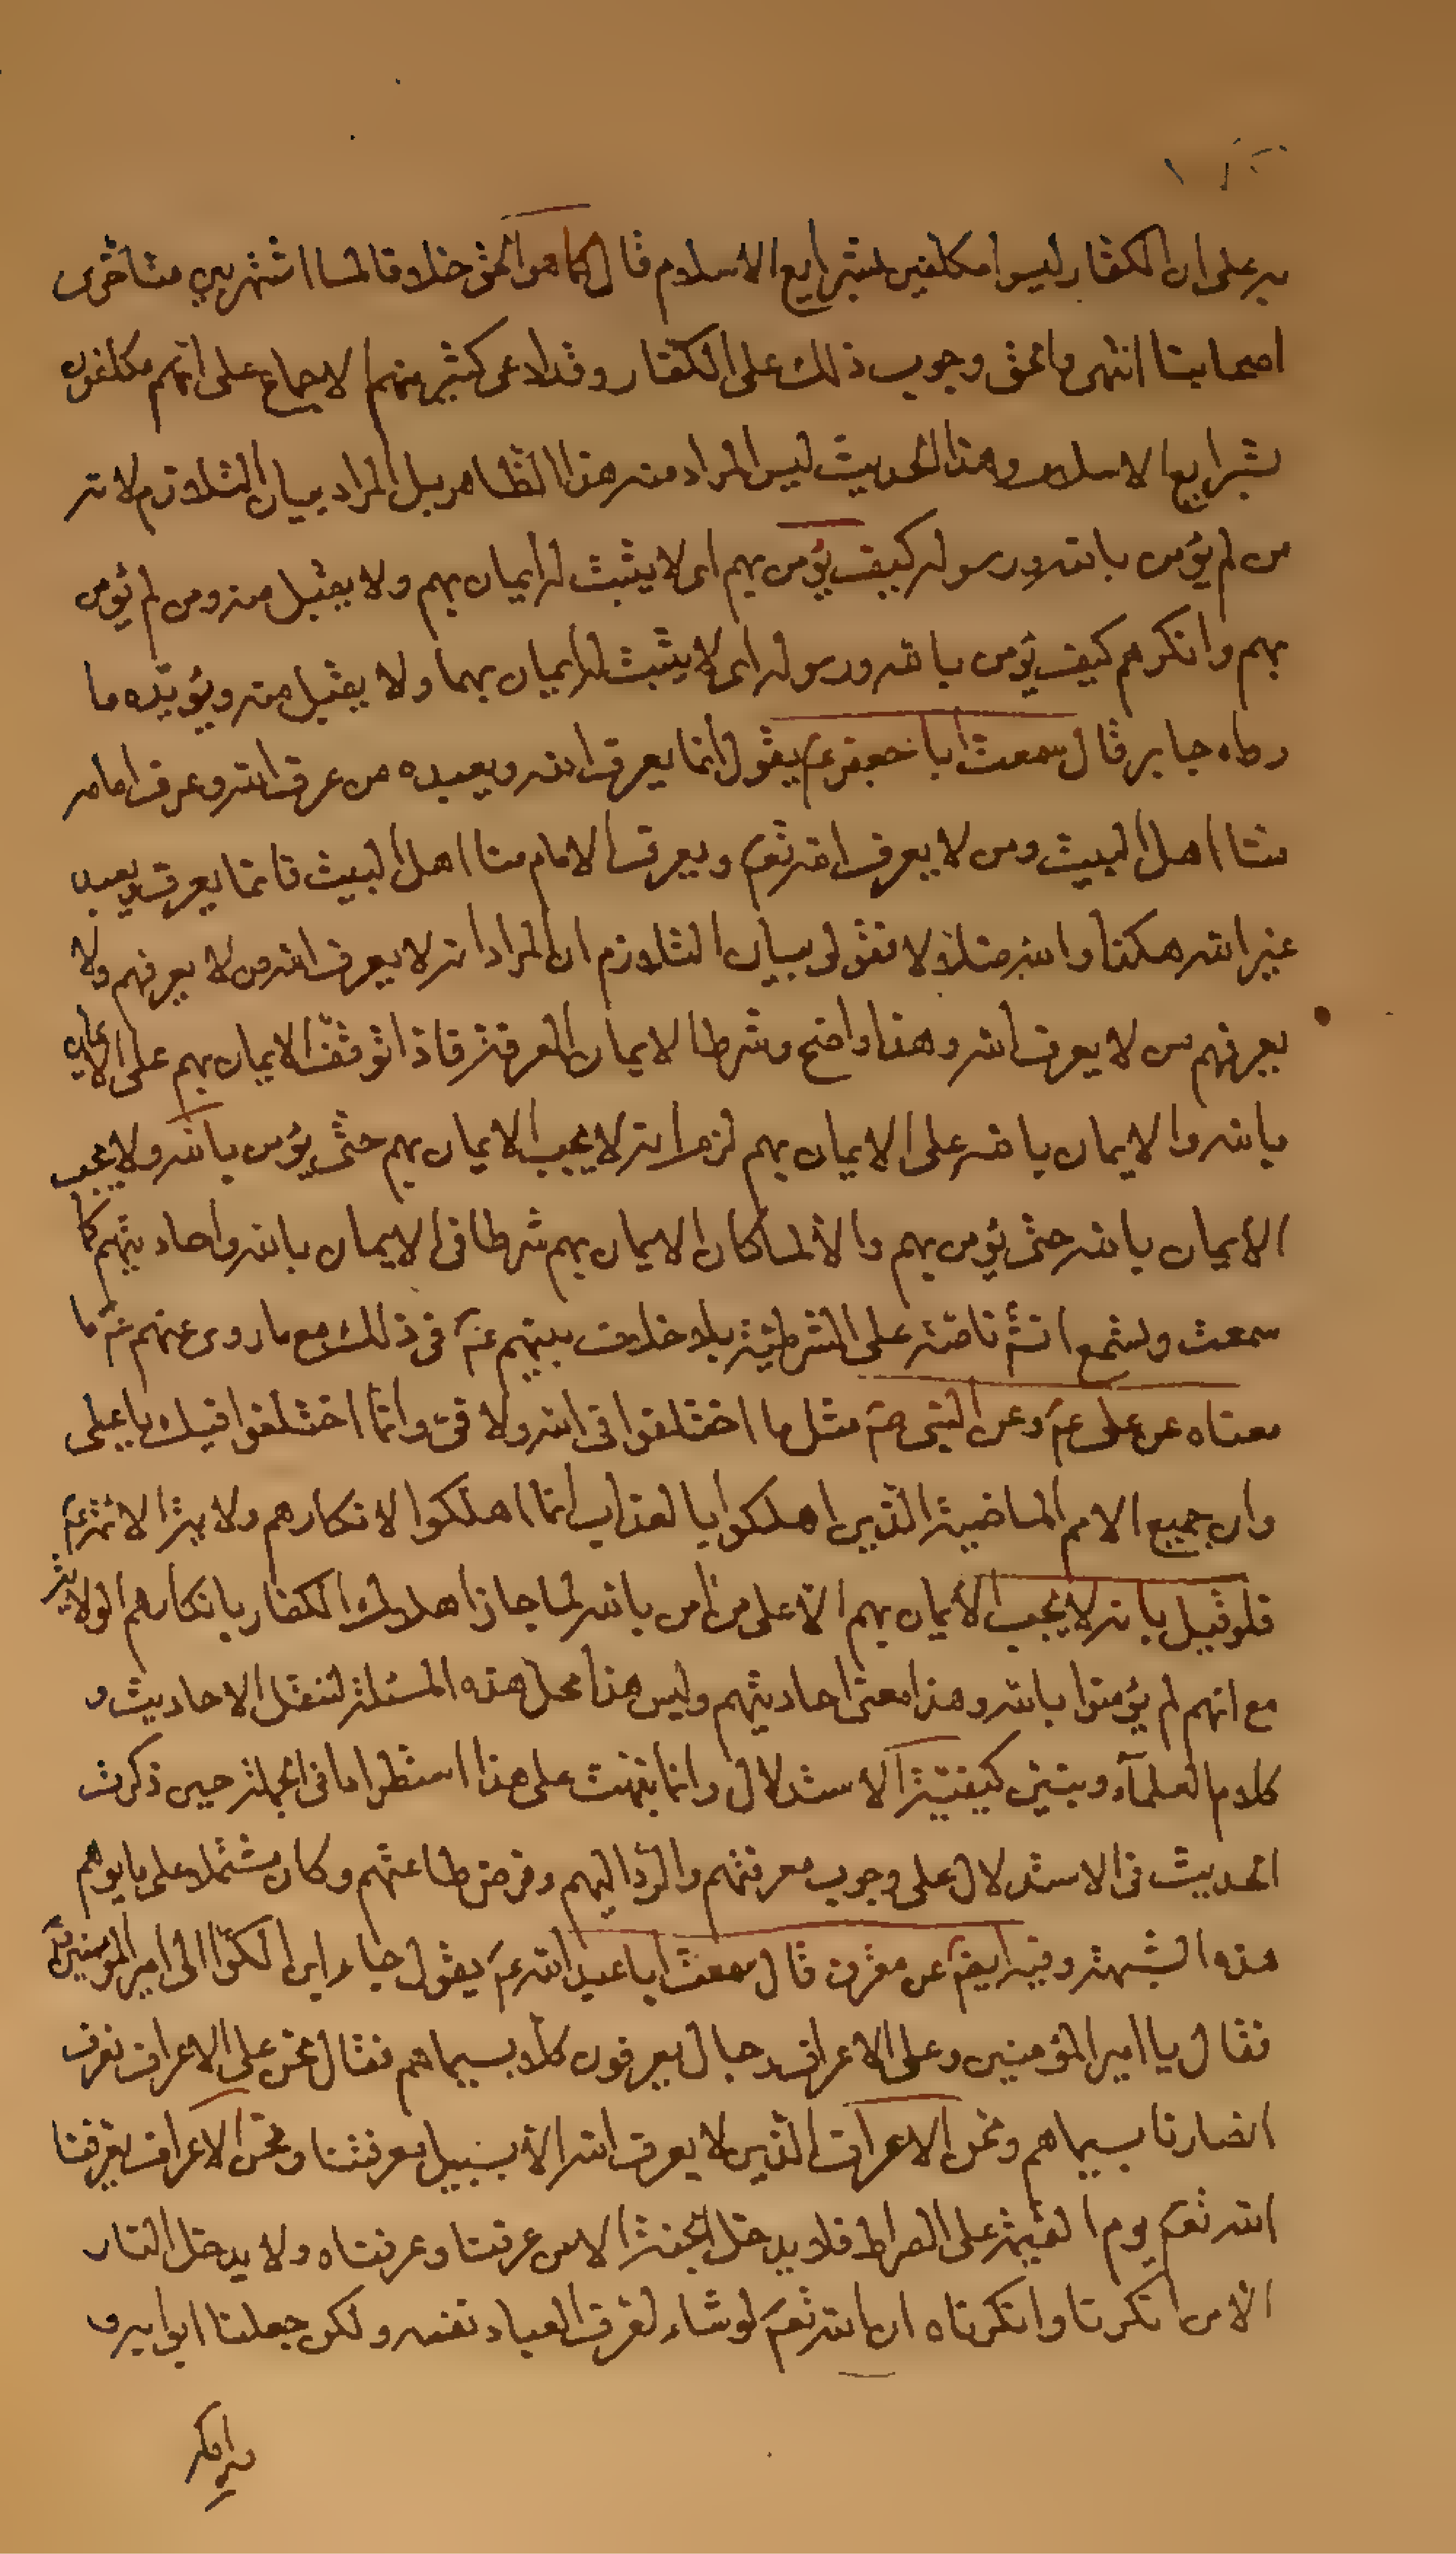 به على ان الكفار ليسوا مكلفين بشرايع الاسلام قال كما هو الحق خلافا لما اشتهر بين متاخرى
اصحابنا انتهى والحق وجوب ذلك على الكفار وقد ادعى كثير منهم الاجماع على انهم مكلفون
بشرايع الاسلام وهذا الحديث ليس المراد منه هذا الظاهر بل المراد بيان التلازم لانه
من لم يؤمن بالله ورسوله كيف يؤمن بهم اى لا يثبت له ايمان بهم ولا يقبل منه ومن لم يؤمن
بهم وانكرهم كيف يؤمن بالله ورسوله اى لا يثبت له ايمان بهما ولا يقبل منه ويؤيده ما
رواه جابر قال سمعت ابا جعفر ع يقول انما يعرف الله ويعبده من عرف الله وعرف امامه
منا اهل البيت ومن لا يعرف الله تع ويعرف الامام منا اهل البيت فانما يعرف ويعبد
غير الله هكذا والله ضلالا لا نقول بيان التلازم ان المراد انه لا يعرف الله من لا يعرفهم ولا
يعرفهم من لا يعرف الله وهذا واضح وشرط الايمان المعرفة فاذا توقف الايمان بهم على الايمان
بالله والايمان بالله على الايمان بهم لزم انه لا يجب الايمان بهم حتى يؤمن بالله ولا يجب
الايمان بالله حتى يؤمن بهم والا لما كان الايمان بهم شرطا فى الايمان بالله واحاديثهم كما
سمعت وتسمع انش ناصة على الشرطية بلا خلاف بينهم ع فى ذلك مع ما روى عنهم ع ما
معناه عن على ع وعن النبى ص مثل ما اختلفوا فى الله ولا فىّ وانما اختلفوا فيك يا على
وان جميع الامم الماضية الذين اهلكوا بالعذاب انما اهلكوا لانكارهم ولاية الائمة ع
فلو قيل بانه لا يجب الايمان بهم الا على من امن بالله لما جاز اهلاك الكفار بانكارهم الولاية
مع انهم لم يؤمنوا بالله وهذا معنى احاديثهم وليس هذا محل هذه المسئلة لننقل الاحاديث و
كلام العلمآء ونبين كيفية الاستدلال وانما نبهت على هذا استطرادا فى الجملة حين ذكرت
الحديث فى الاستدلال على وجوب معرفتهم والرد اليهم وفرض طاعتهم وكان مشتملا على ما يوهم
هذه الشبهة وفيه ايض عن مقرن قال سمعت ابا عبد الله ع يقول جاء ابن الكوا الى امير المومنين ع
فقال يا امير المؤمنين وعلى الاعراف رجال يعرفون كلا بسيماهم فقال نحن على الاعراف نعرف
انصارنا بسيماهم ونحن الاعراف الذين لا يعرف الله الا بسبيل معرفتنا ونحن الاعراف يعرفنا
الله تع يوم القيمة على الصراط فلا يدخل الجنة الا من عرفنا وعرفناه ولا يدخل النار
الا من انكرنا وانكرناه ان الله تع لو شاء لعرف العباد نفسه ولكن جعلنا ابوابه و